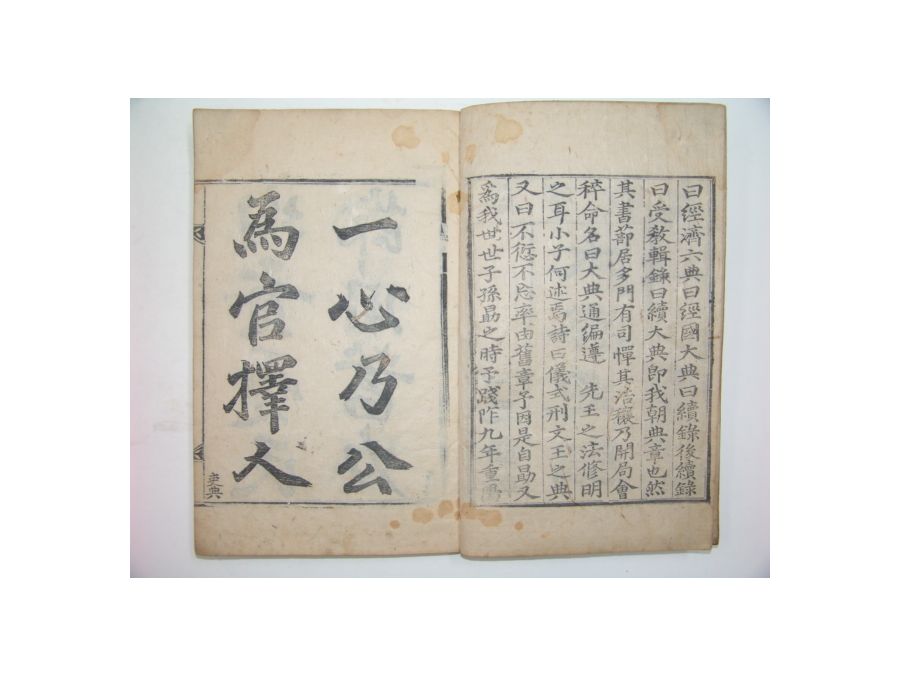 曰經濟六典曰經國大典曰續錄後續錄
曰受敎輯錄曰續大典卽我朝典章也然
其書蔀居多門有司憚其浩穰乃開局會
稡命名曰大典通編遵 先王之法修明
之耳小子何述焉詩曰儀式刑文王之典
又曰不愆不忘率由舊章予因是自勖又
爲我世世子孫勗之時予踐阼九年重
一心乃公
為官擇人
吏典